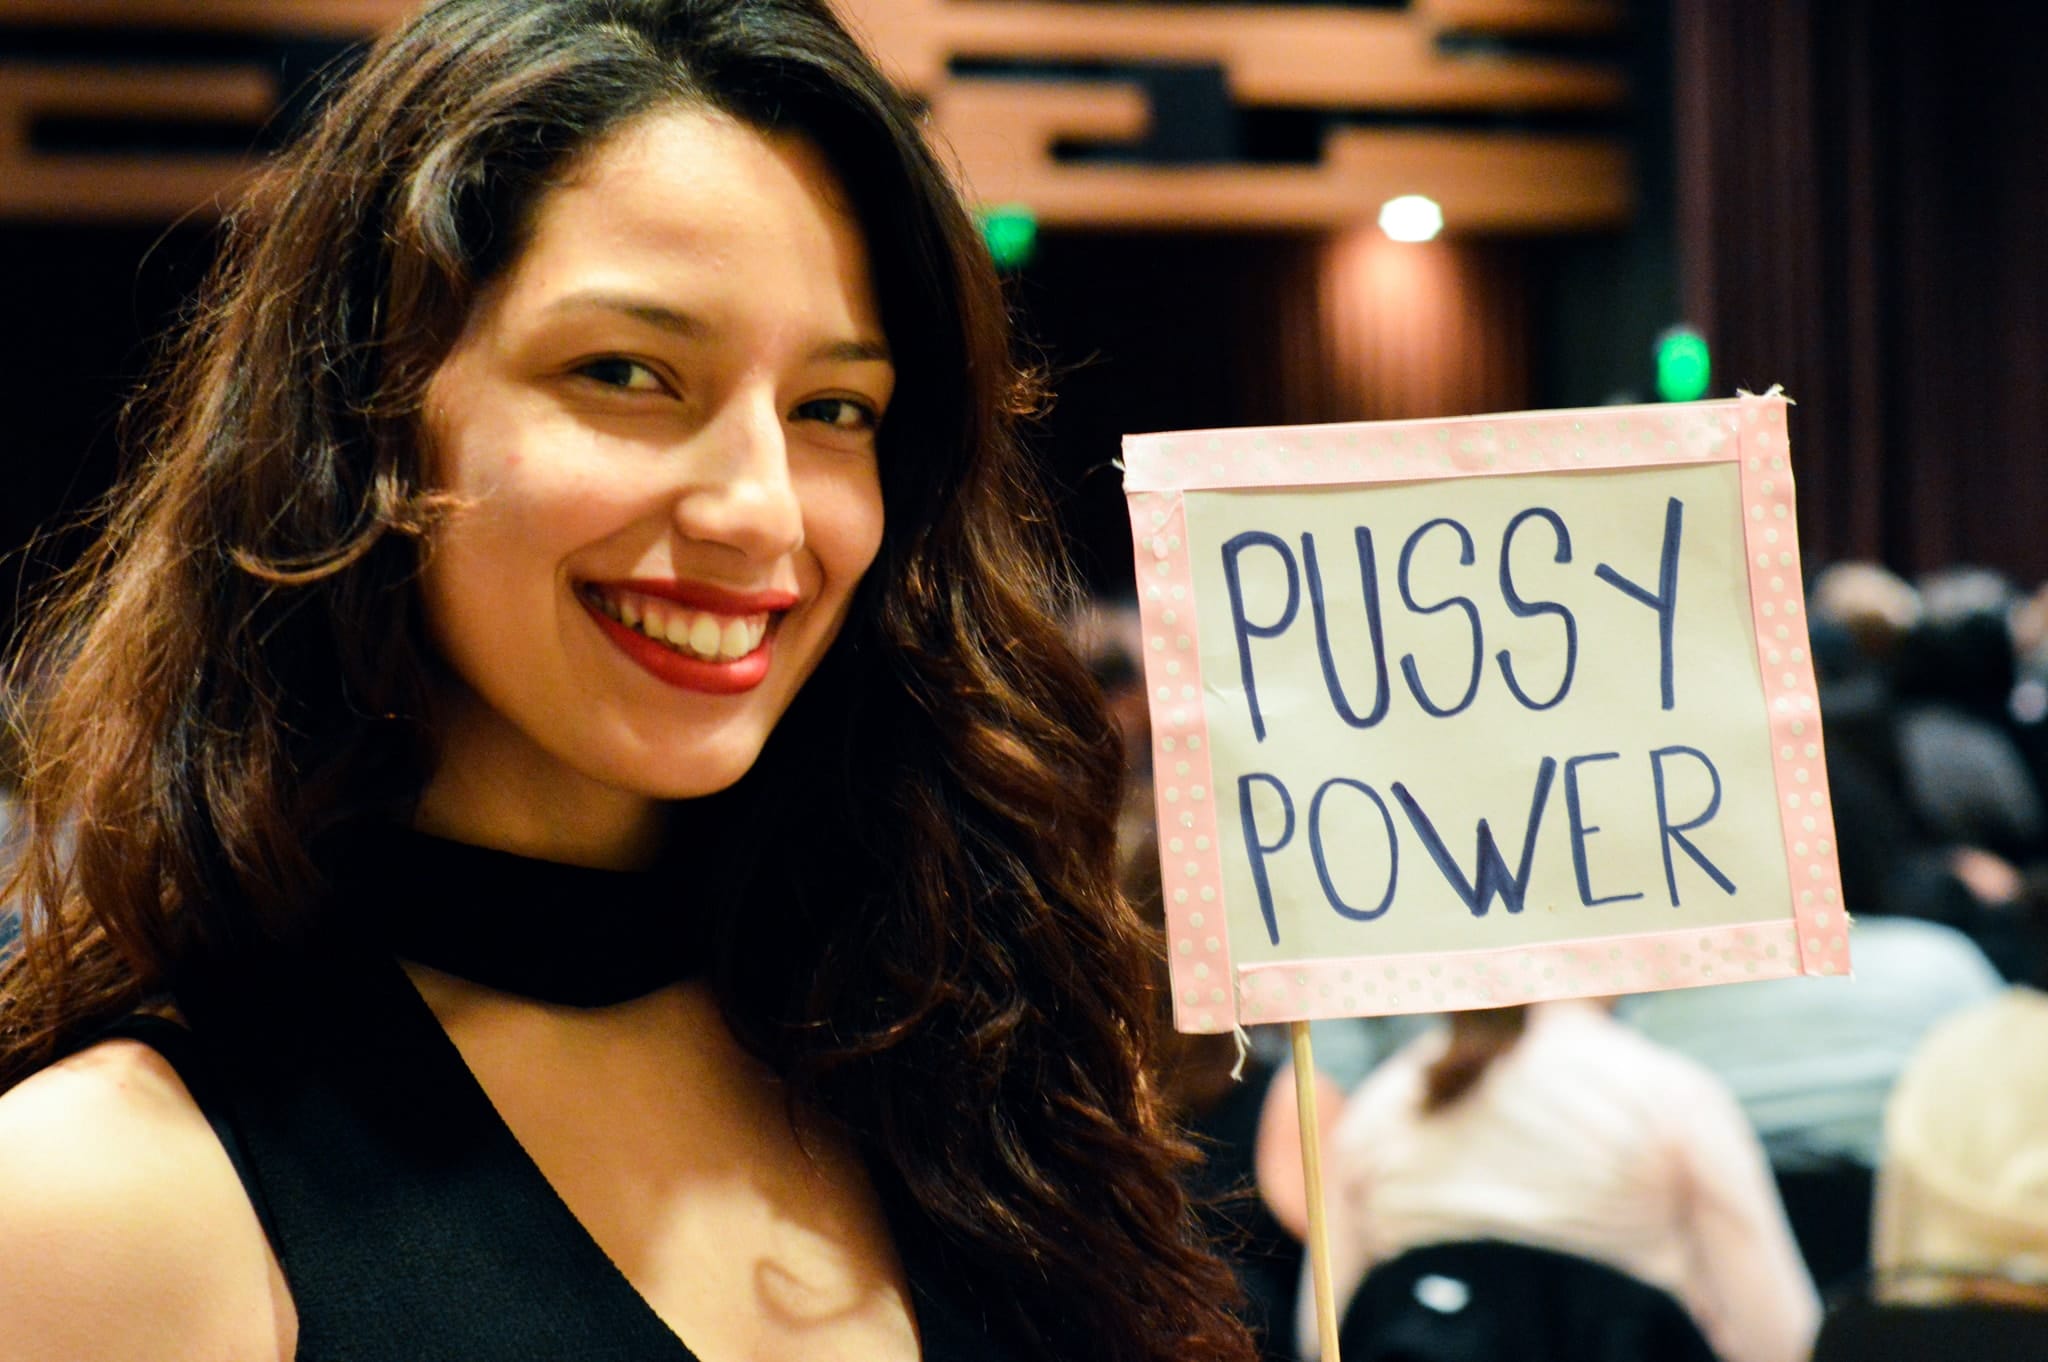 PUSSY
POWER